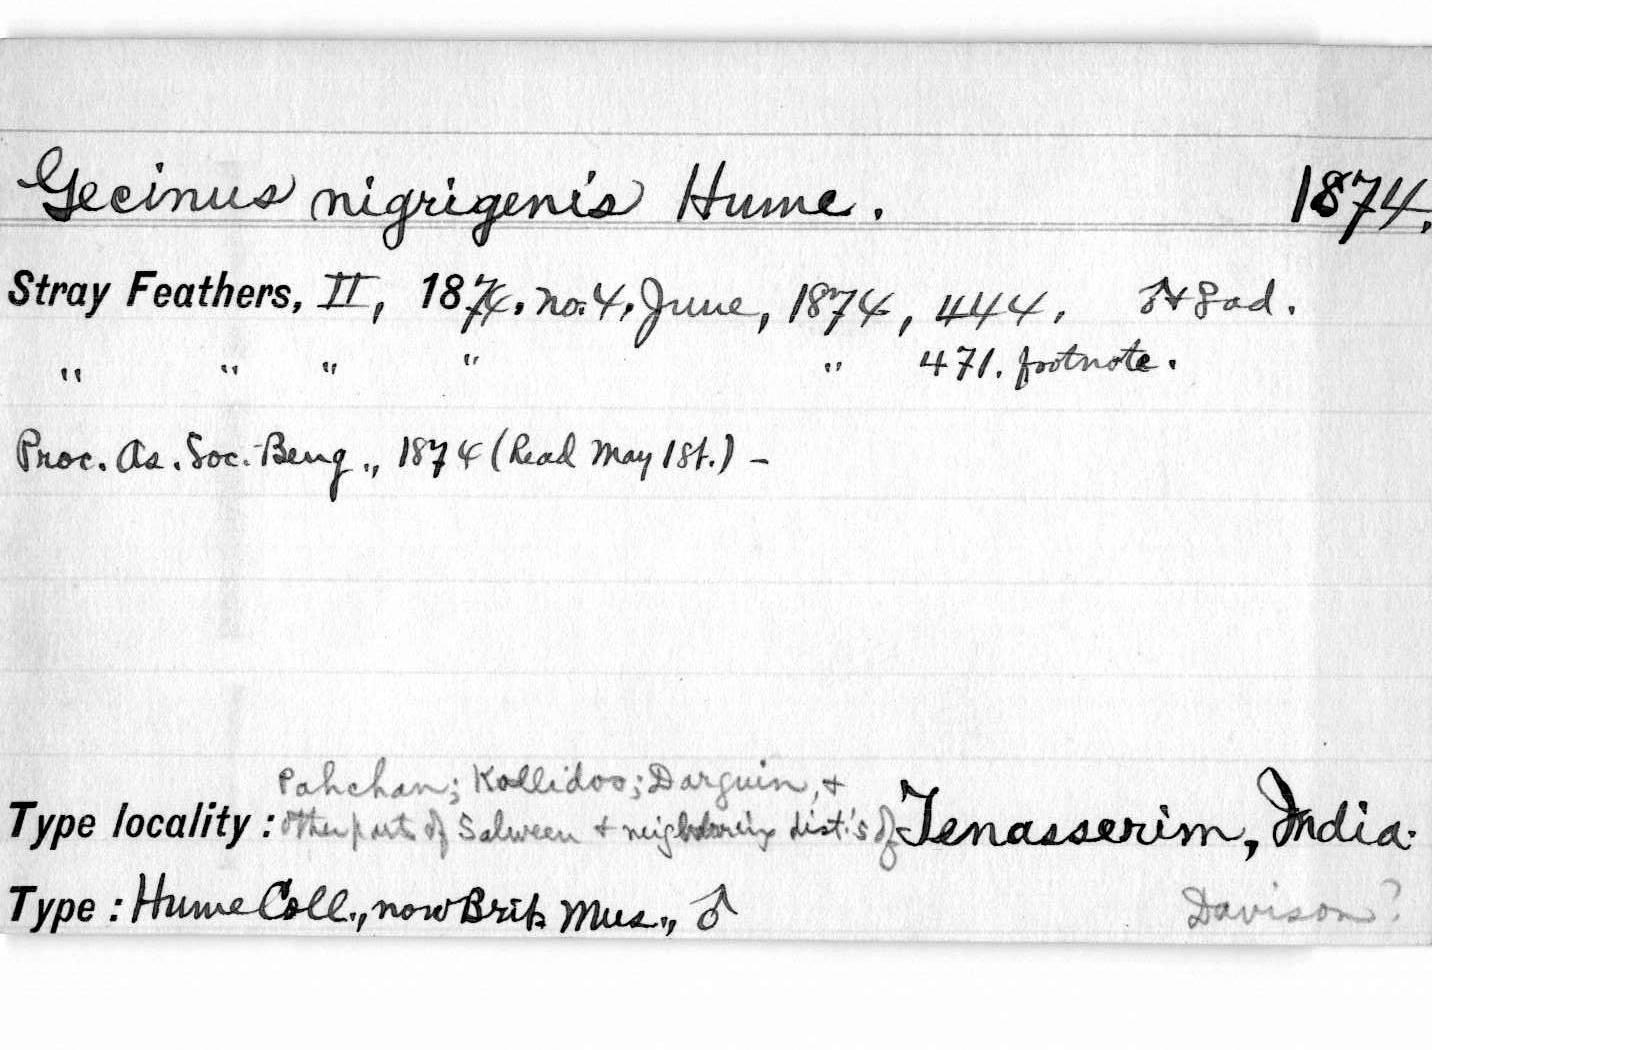 Gecinus nigrigenis Hume. 1874.
Stray Feathers, II, 1874, no. 4, June, 1874, 444, ♂ + ♀ ad.
" " " " " 471. footnote.
Proc. As. Soc. Beng., 1874 (Read May 1st.) –
Pahchan; Kollidoo; Darguin, +
Type locality: other parts of Salween + neighboring dist.'s of Tenasserim, India.
Type: Hume Coll., now Brit. Mus., ♂ Davison?